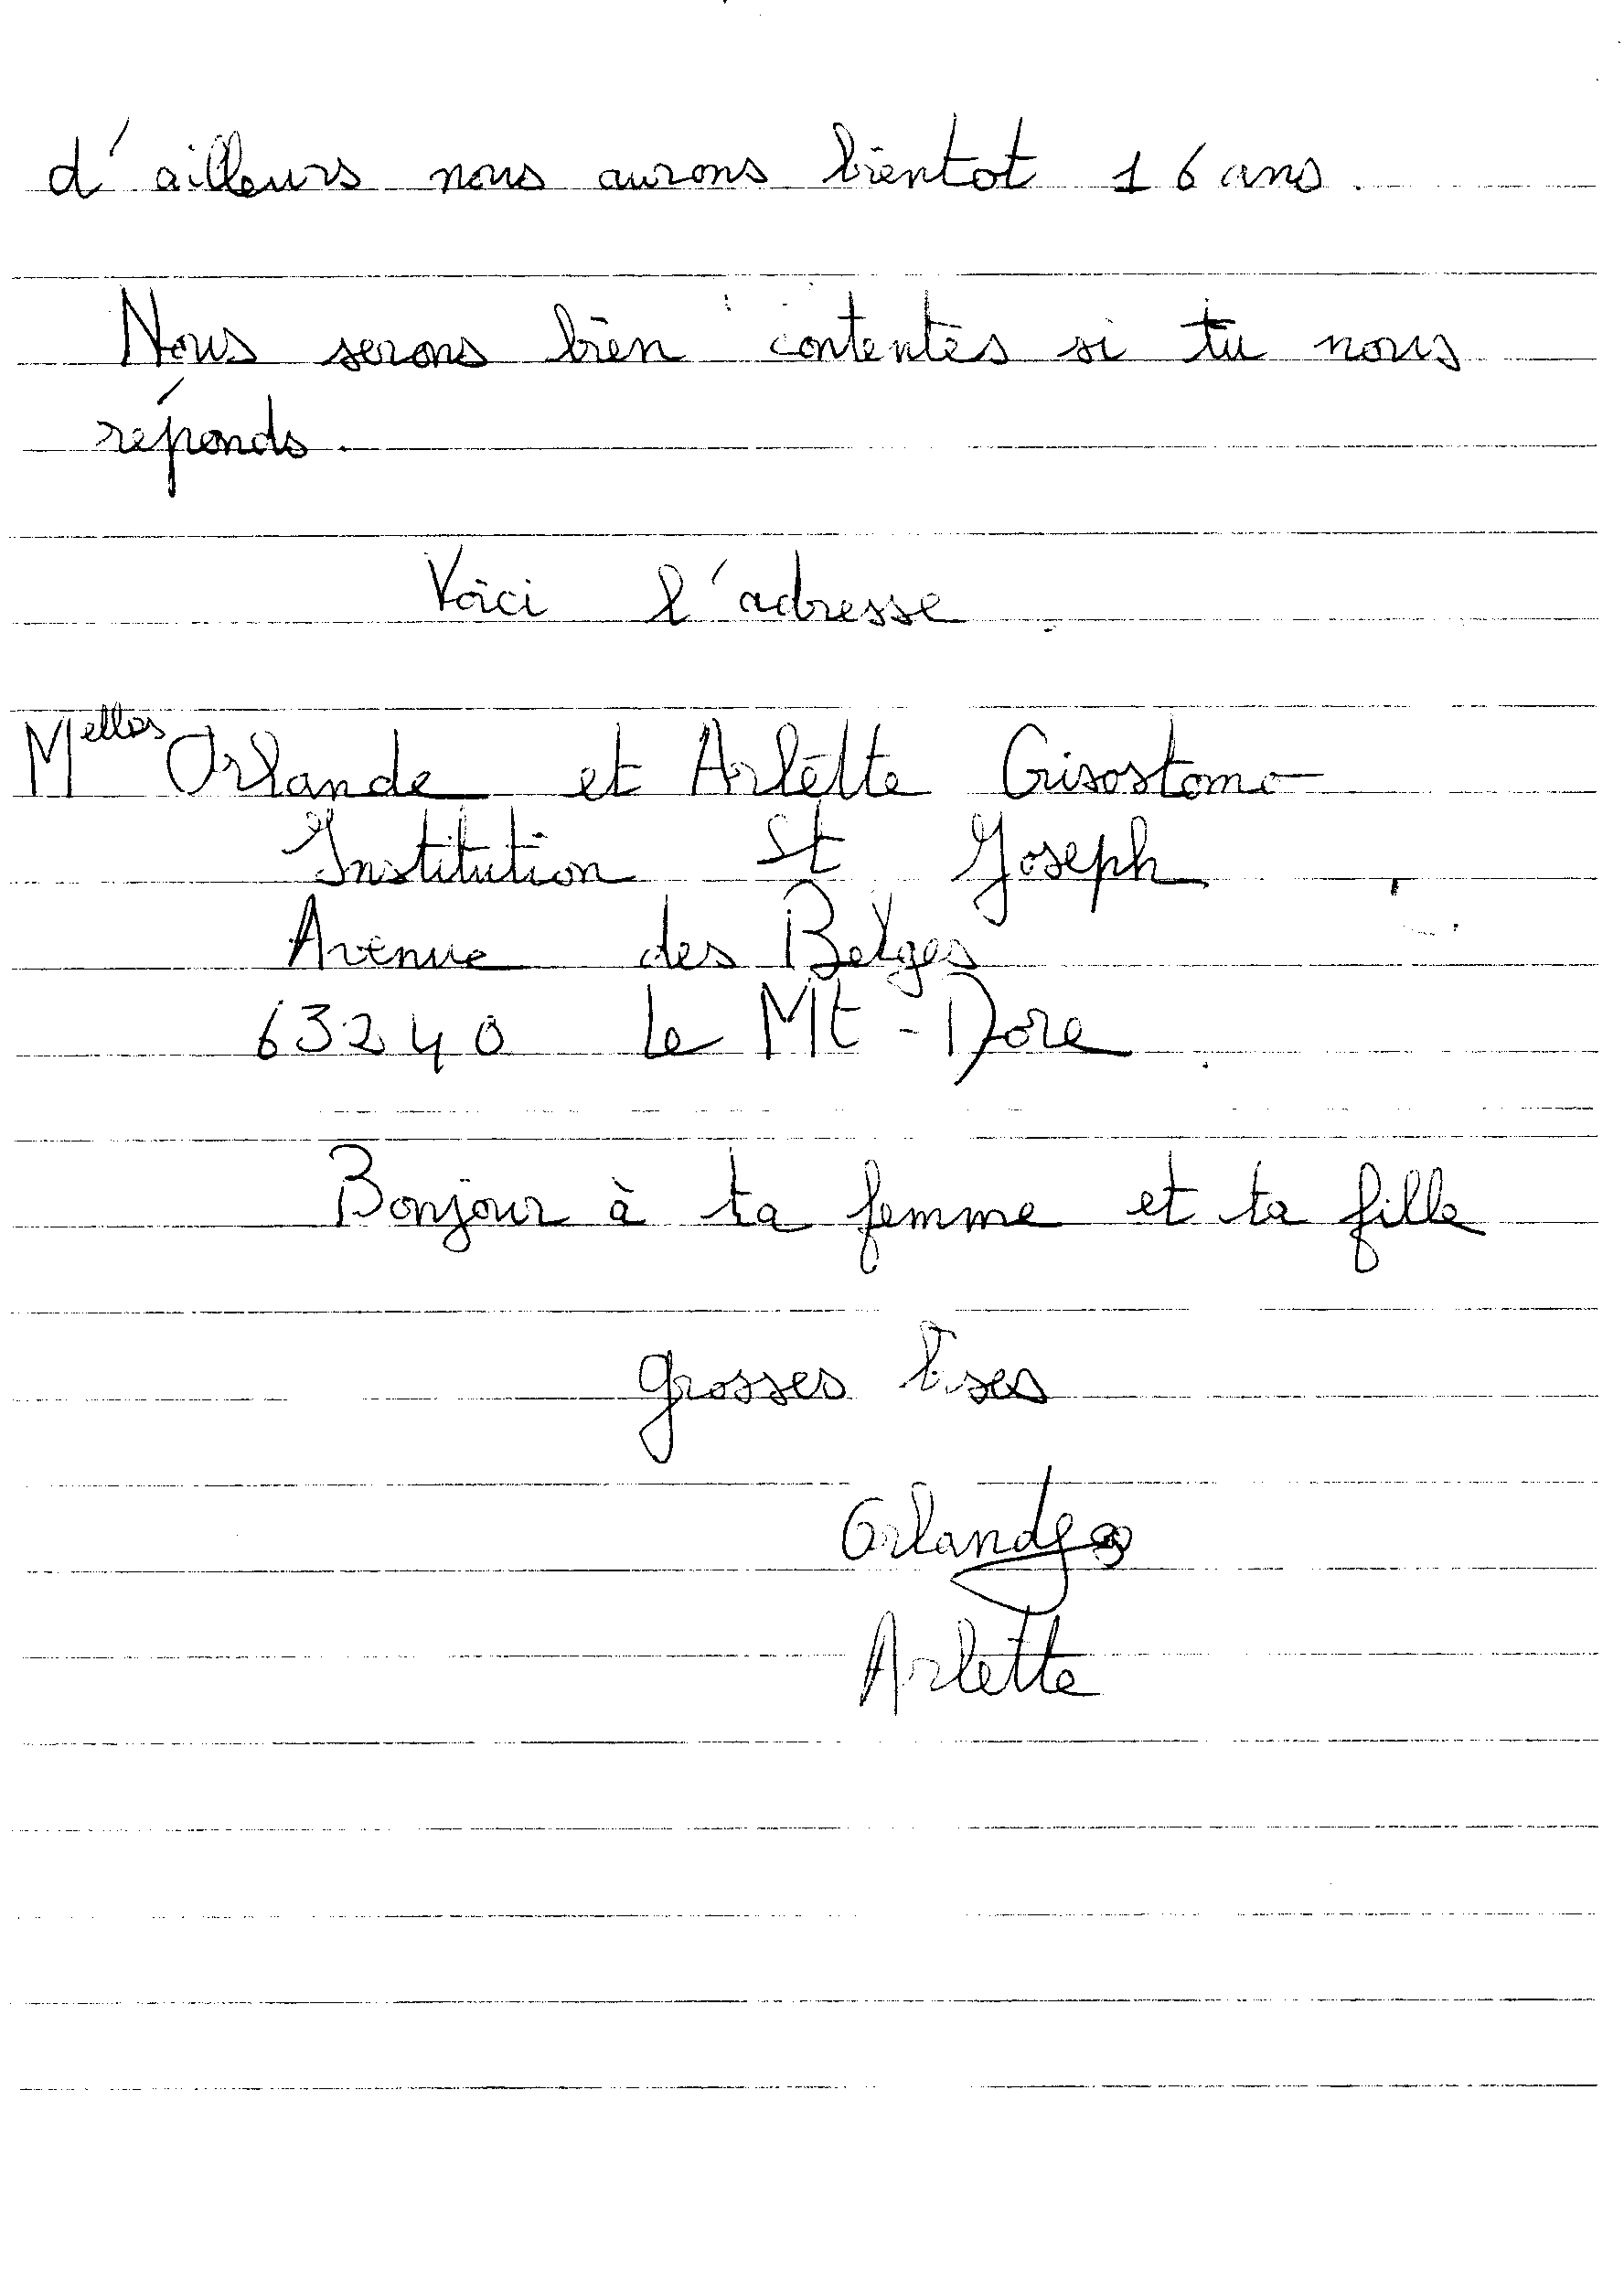 d'ailleurs nous aurons bientot 16 ans.
Nous serons bien contentes si tu nous
réponds.
Voici l'adresse
Melles Orlande et Arlette Crisostomo
Institution St Joseph
Avenue des Belges
63240 Le Mt-Dore
Bonjour à ta femme et ta fille
grosses bises
Orlande
Arlette